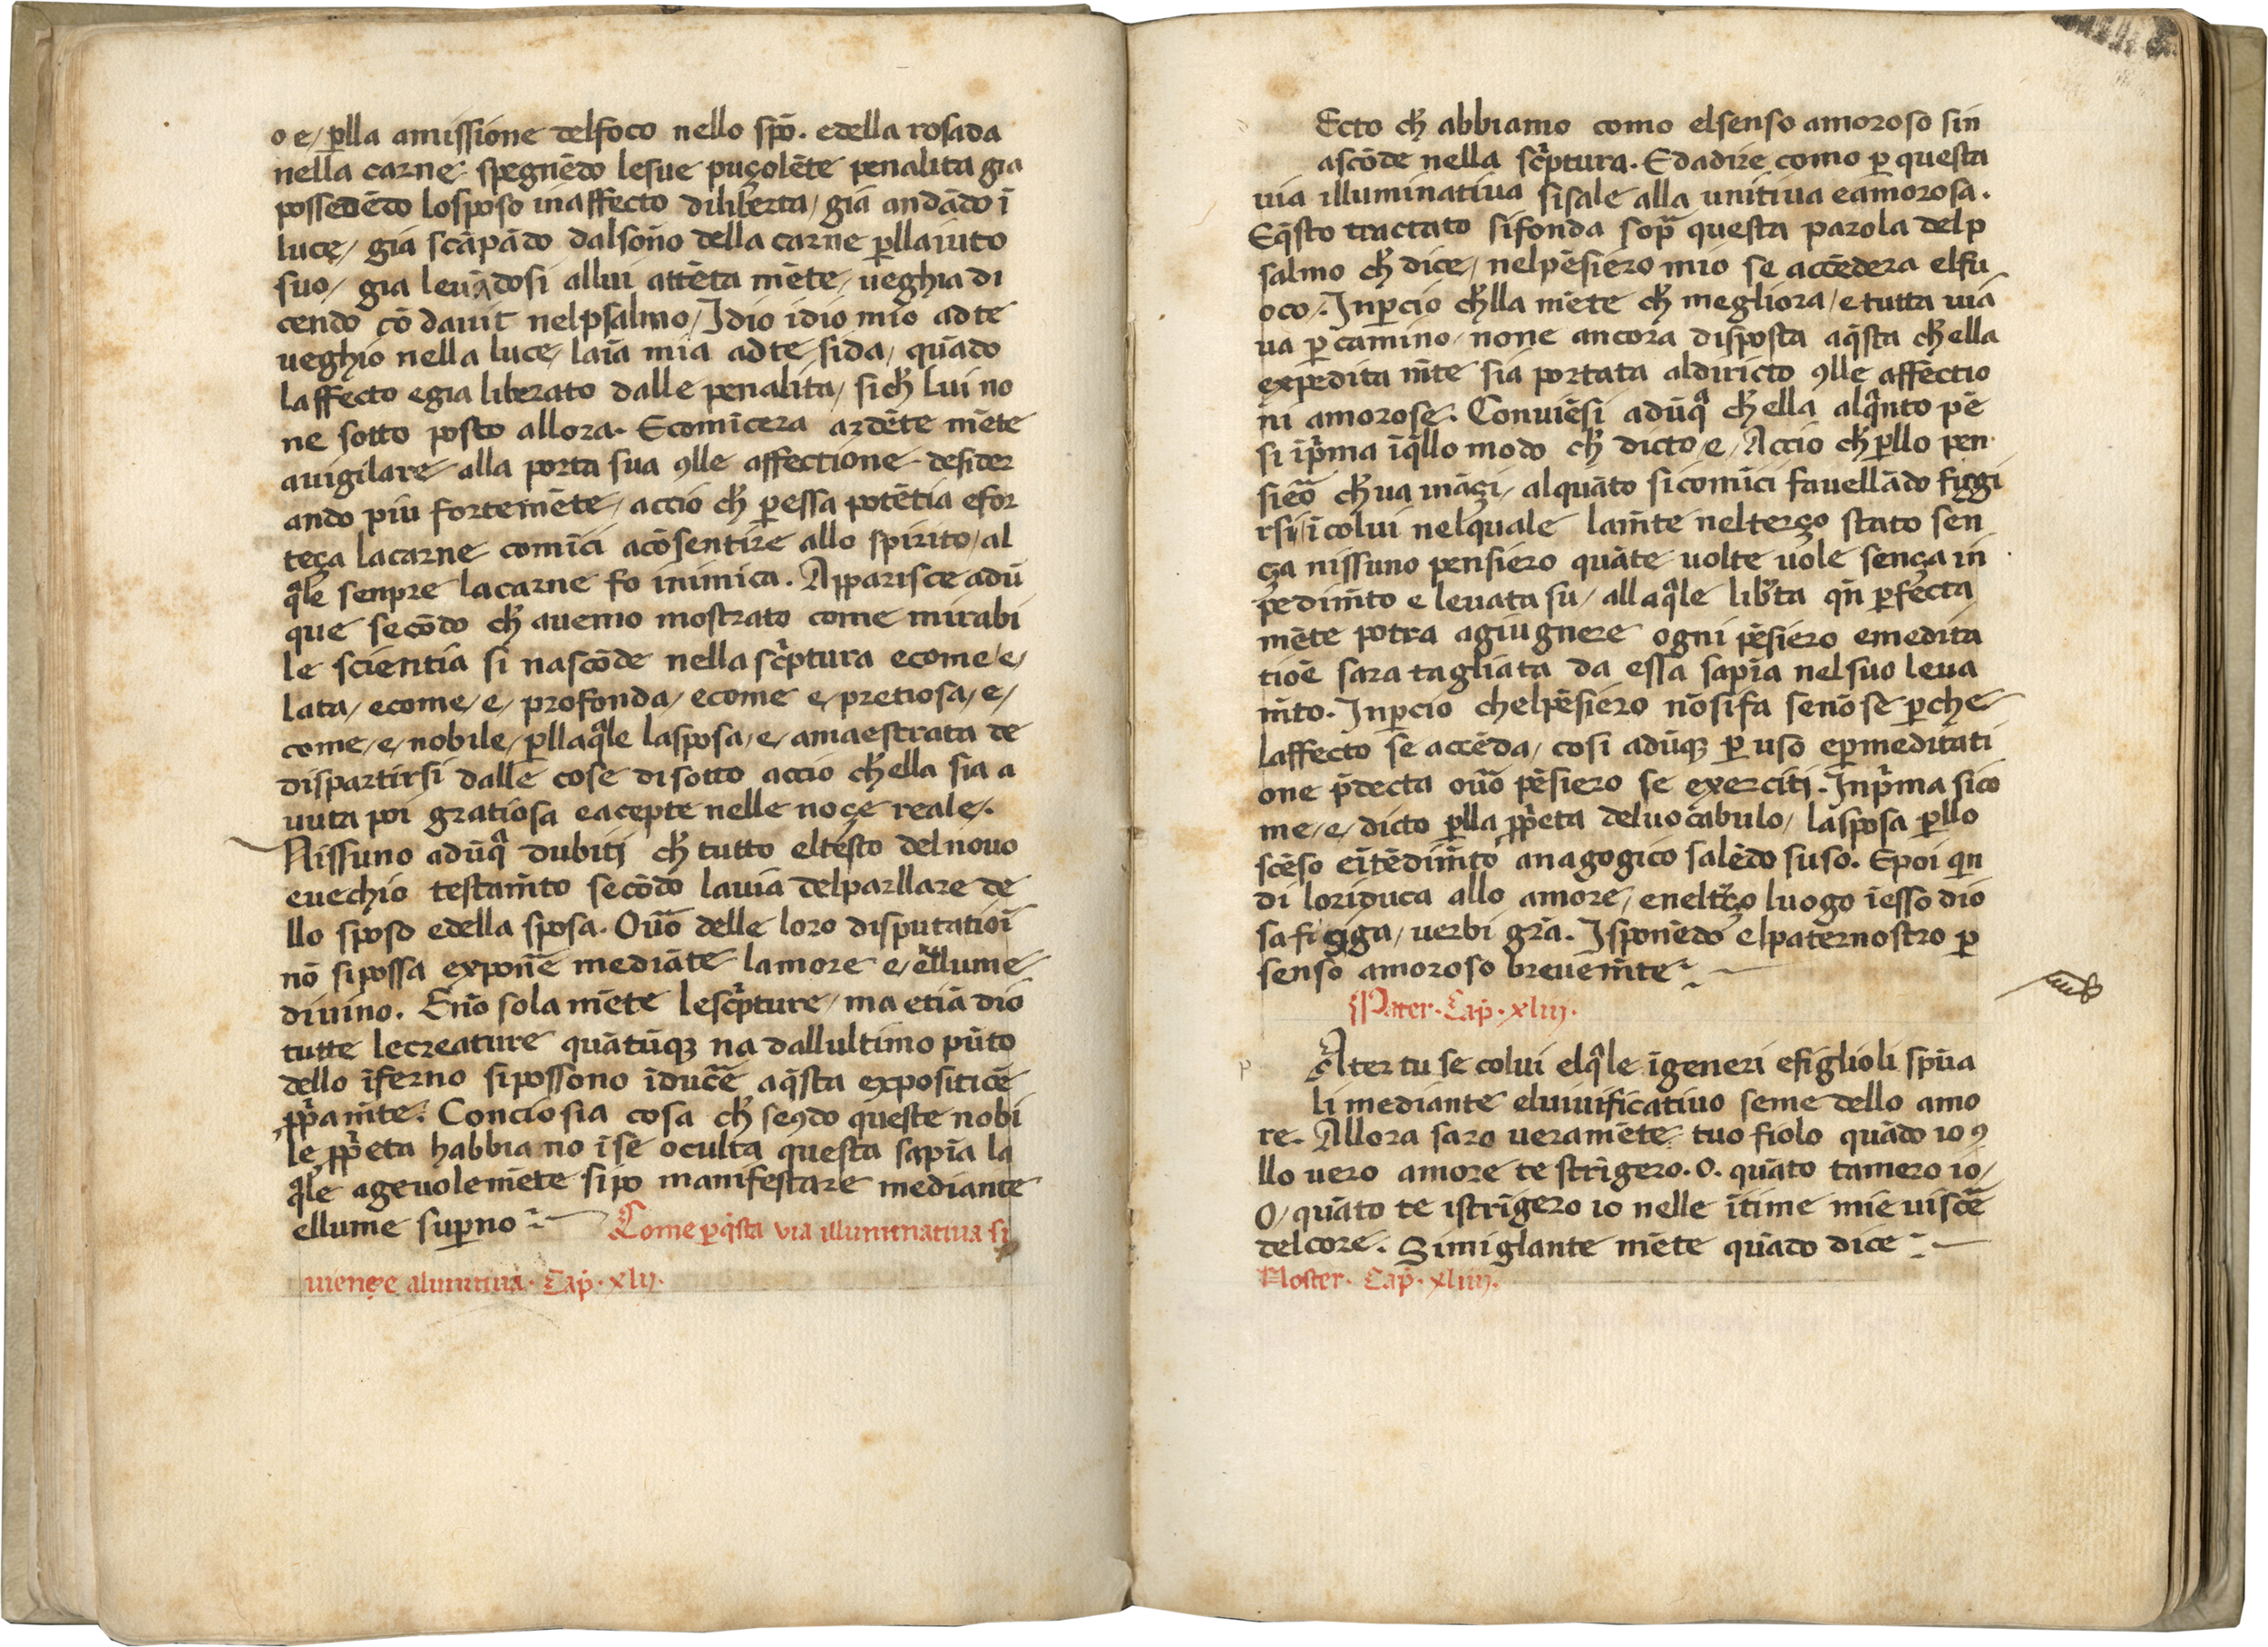 o e/ ꝑlla amissione delfoco nello sp̄o. edella rosada
nella carne spegnēdo lesue puçolēte penalita gia
possedēdo losposo inaffecto diliberta/ gia andādo ī
luce/ gia scāpādo dalsoño della carne ꝑllaiuto
suo/ gia leuādosi allui attēta mēte/ ueghia di
cendo cō dauit nelpsalmo/ Idio idio mio adte
ueghio nella luce/ laīa mia adte sida/ quādo
laffecto egia liberato dalle penalita/ sicħ lui no
ne sotto posto allora. Ecomīcera ardēte mēte
auigilare alla porta sua ꝯlle affectione desider
ando piu fortemēte/ accio cħ ꝑessa potētia efor
teça lacarne comīci acōsentire allo spirito/ al
qͣle senpre lacarne fo inimica. Apparisce adū
que secōdo cħ auemo mostrato come mirabi
le scientia si nascōde nella scͥptura ecome/e/
lata/ ecome/e/ profonda/ ecome e/ pretiosa/e/
come/e/ nobile/ ꝑllaqͣle lasposa/e/ amaestrata de
dispartirsi dalle cose disotto accio cħella sia a
uuta poi gratiosa eacepte nelle noçe reale/.
Nissuno adūqͣ dubitj cħ tutto eltesto delnouo
euechio testam̄to secōdo lauia delparllare de
llo sposo edella sposa. Ou͞o delle loro disputatiōi
nō sipossa exponē mediāte lamore e/ ellume
diuino. Enō sola mēte lescͥpture/ ma etiā dio
tutte lecreature quātūqꝫ na dallultimo pūto
dello īferno sipossono īducē aq̄sta expositiōe
ꝓpͥam̄te. Conciosia cosa cħ seꝯdo queste nobi
le ꝓpͥeta habbiano īse oculta questa sapīa la
qͣle ageuolemēte sipo manifestare mediante
ellume suꝑno
Come ꝑq̄sta uia illuminatiua si
uiençe alunitiua. Cap̄. xlij.
Ecto cħ abbiamo como elsenso amoroso sin
ascōde nella scͥptura. Edadire como ꝑ questa
uia illuminatiua sisale alla unitiua eamorosa.
Eq̄sto tractato sifonda sopͣ questa parola delp
salmo cħ dice/ nelpēsiero mio se accēdera elfu
oco/. Inꝑcio cħlla mēte cħ megliora/ e tutta uia
ua ꝑ camino/ none ancora disposta aq̄sta cħella
expedita m̄te sia portata aldiricto ꝯlle affectio
ni amorose. Conuiēsi adūqͣ cħella alqͣnto pē
si īpͥma īq̄llo modo cħ dicto/e/ Accio cħ ꝑllo pen
sieͣo cħ ua ināçi/ alquāto sicomīci fauellādo figgi
rsi/ īcolui nelquale lam̄te nelterço stato sen
ça nissuno pensiero quāte uolte uole sença in
pedim̄to e leuata su/ allaqͣle lib̄ta qn̄ ꝑfecta
mēte potra agiugnere ogni pēsiero emedita
tiōe sara tagliata da essa sapīa nelsuo leua
m̄to. Inꝑcio chelpēsiero nōsifa senōse ꝑche
laffecto se accēda/ cosi adūqꝫ ꝑ uso eꝑmeditati
one p̄decta ou͞o pēsiero se exercitj. Inpͥma sico
me/e/ dicto ꝑlla ꝓpͥeta deluocabulo/ lasposa ꝑllo
scēso eītēdim̄to anagogico salēdo suso. Epoi qn
di loriduca allo amore/ eneltͤço luogo īesso dio
safigga/ uerbi grā. Isponēdo elpaternostro ꝑ
senso amoroso breuem̄te
Pater. Cap̄. xliij.
p
Ater tu se colui elqͣle īgeneri efiglioli spūa
li mediante eluiuificatiuo seme dello amo
re. Allora saro ueramēte tuo fiolo quādo io ꝯ
llo uero amore te strīgero. O. quāto tamero io/
O/ quāto te istrīgero io nelle ītime mie uiscē
delcore. Simiglante mēte quādo dice
Noster. Cap̄. xliiij.